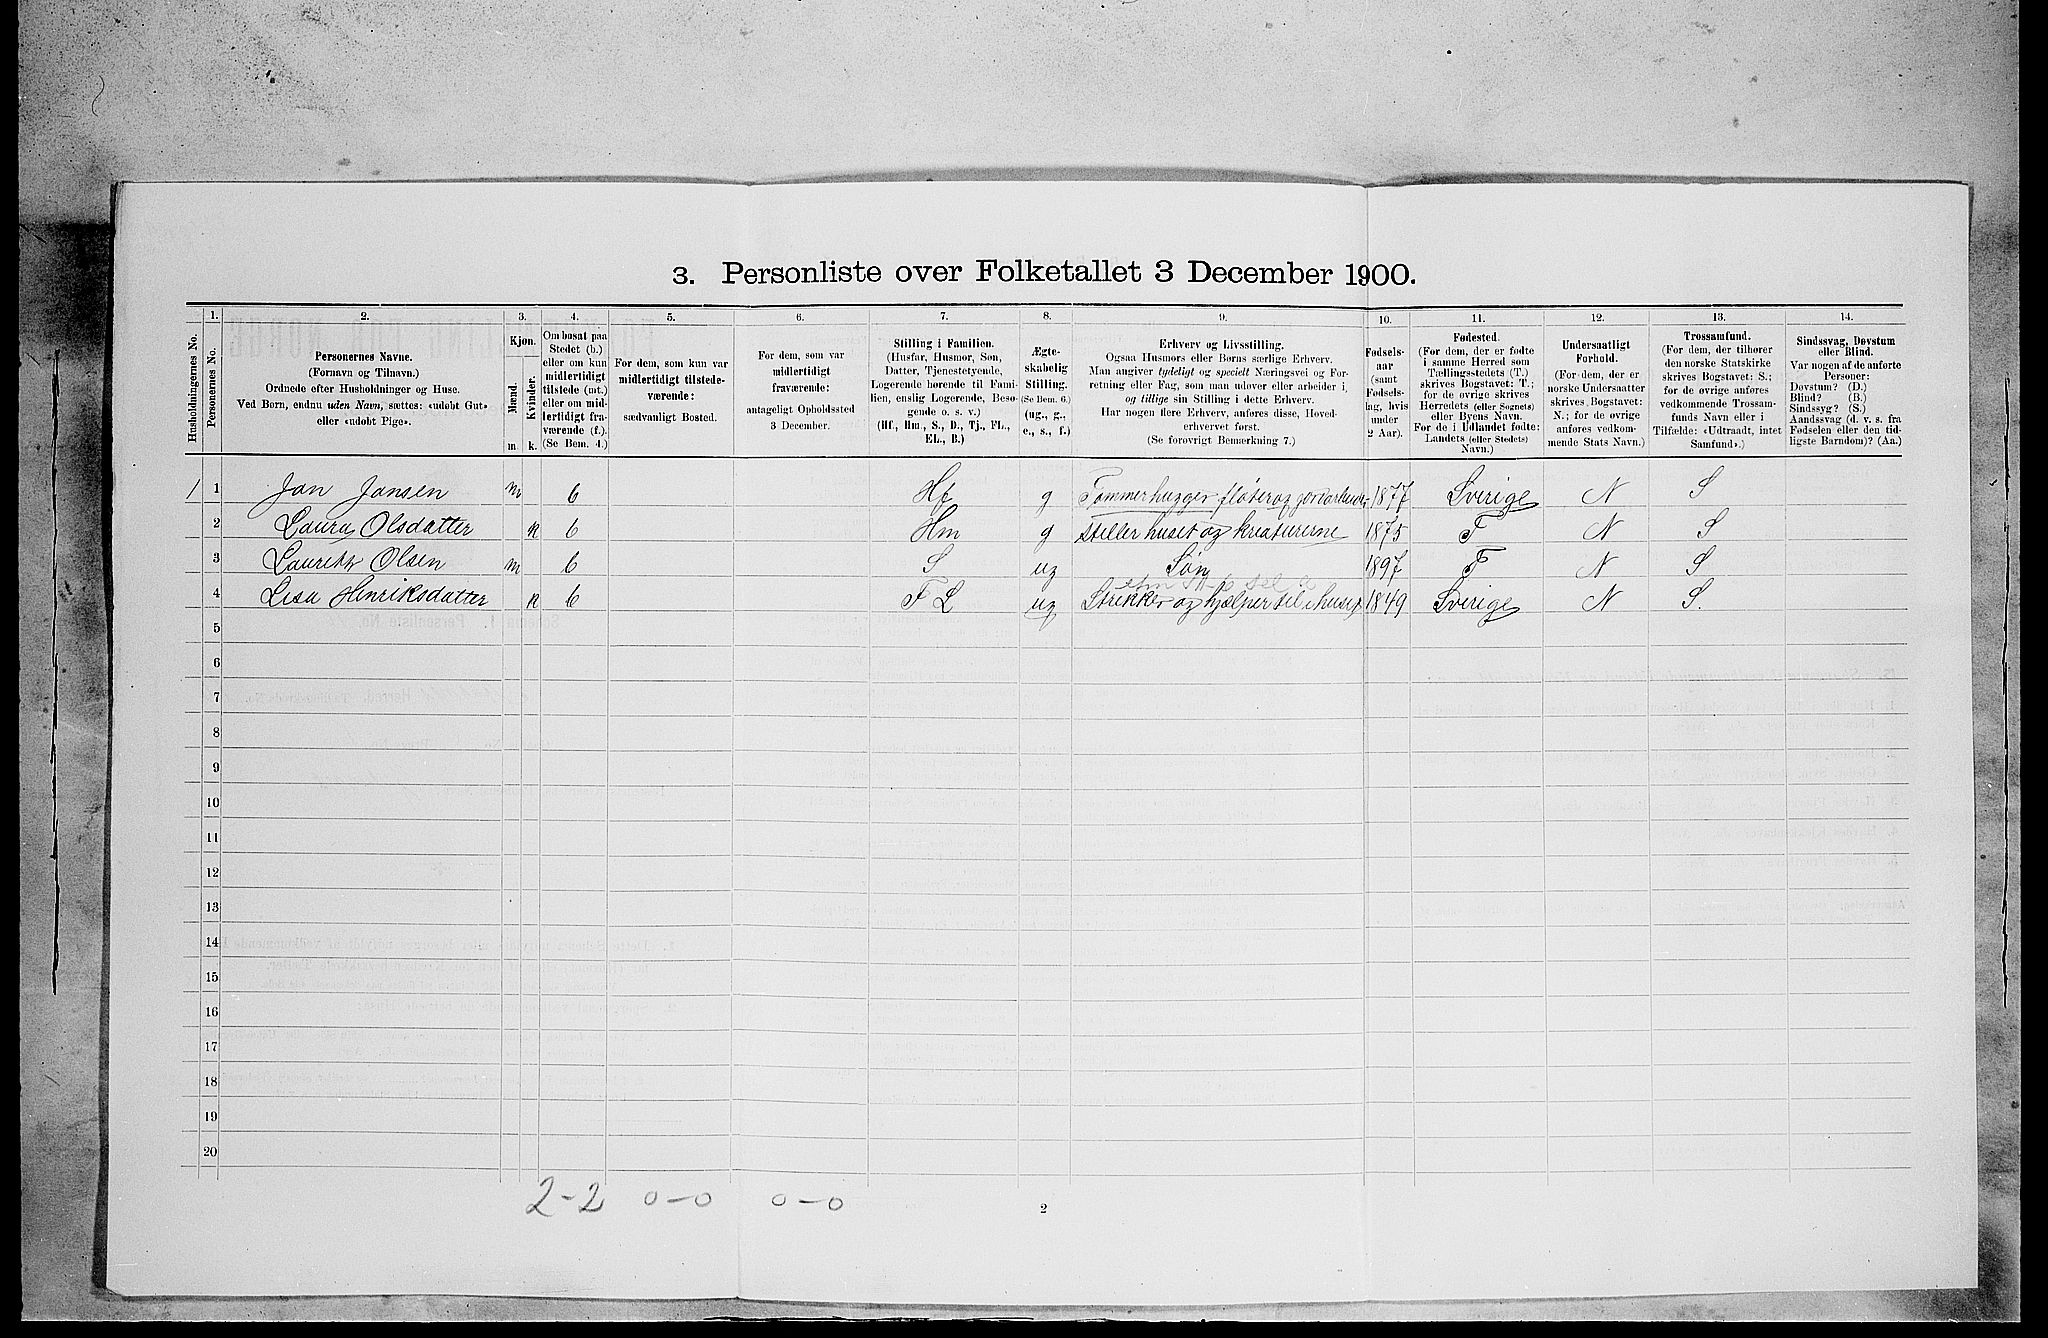 3. Personliste over Folketallet 3 December 1900.
Husholdningernes No.
1.
Personernes No.
2.
Personernes Navne.
(Fornavn og Tilnavn.)
Ordnede efter Husholdninger og Huse.
Ved Børn, endnu uden Navn, sættes: «udøbt Gut»
eller «udøbt Pige».
3.
Kjøn.
Mænd.
Kvinder.
m. k.
4.
Om bosat paa
Stedet (b.)
eller om kun
midlertidigt
tilstede (mt.)
eller om mid-
lertidigt fra-
værende (f.).
(Se Bem. 4.)
5.
For dem, som kun var
midlertidigt tilstede-
værende:
sædvanligt Bosted.
6.
For dem, som var
midlertidigt
fraværende:
antageligt Opholdssted
3 December.
7.
Stilling i Familien.
(Husfar, Husmor, Søn,
Datter, Tjenestetyende,
Logerende hørende til Fami-
lien, enslig Logerende, Besø-
gende o. s. v.)
(Hf., Hm., S., D., Tj., FL.,
EL., B.)
8.
Ægte-
skabelig
Stilling.
(Se Bem. 6.)
(ug., g.,
e., s., f.)
9.
Erhverv og Livsstilling.
Ogsaa Husmors eller Børns særlige Erhverv.
Man angiver tydeligt og specielt Næringsvei og For-
retning eller Fag, som man udøver eller arbeider i,
og tillige sin Stilling i dette Erhverv.
Har nogen flere Erhverv, anføres disse, Hoved-
erhvervet først.
(Se forøvrigt Bemærkning 7.)
10.
Fødsels-
aar
(samt
Fødsels-
dag, hvis
under
2 Aar).
11.
Fødested.
(For dem, der er fødte
i samme Herred som
Tællingsstedets (T.)
skrives Bogstavet: T.;
for de øvrige skrives
Herredets (eller Sognets)
eller Byens Navn.
For de i Udlandet fødte:
Landets (eller Stedets)
Navn.)
12.
Undersaatligt
Forhold.
(For dem, der er
norske Undersaatter
skrives Bogstavet:
N.; for de øvrige
anføres vedkom-
mende Stats Navn.)
13.
Trossamfund.
(For dem, der tilhører
den norske Statskirke
skrives Bogstavet: S.;
for de øvrige anføres
vedkommende Trossam-
funds Navn eller i
Tilfælde: «Udtraadt, intet
Samfund».)
14.
Sindssvag, Døvstum
eller Blind.
Var nogen af de anførte
Personer:
Døvstum? (D.)
Blind? (B.)
Sindssyg? (S.)
Aandssvag (d. v. s. fra
Fødselen eller den tid-
ligste Barndom)? (Aa.)
1 1 Jan Jansen m b Hf g Tømmerhugger fløter og jordarbeider 1877 Sverige N S
2 Laura Olsdatter k b Hm g Steller huset og kreaturerne 1875 T N S
3 Lauretz Olsen m b S ug Søn 1897 T N S
4 Lisa Henriksdatter k b FL ug Strikker og hjælper til i huset 1849 Sverige N S.
5
6
7
8
9
10
11
12
13
14
15
16
17
18
19
20
2-2 0-0 0-0
2